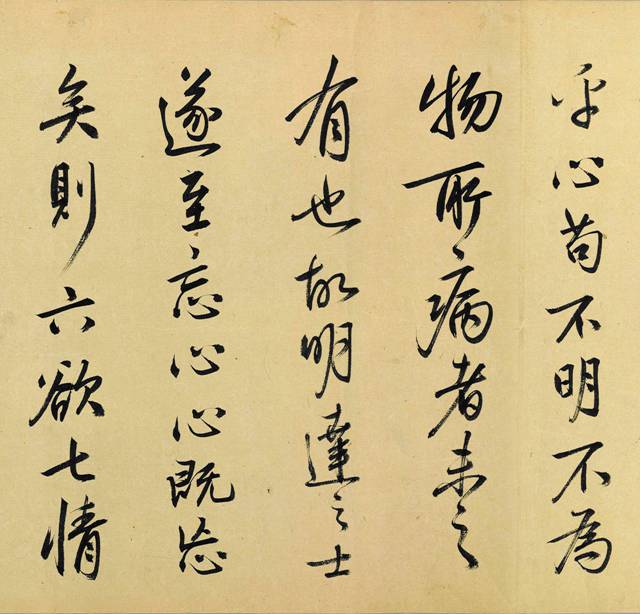 乎心苟不明不為
物所病者未之
有也故明達之士
遂至忘心心既忘
矣則六欲七情